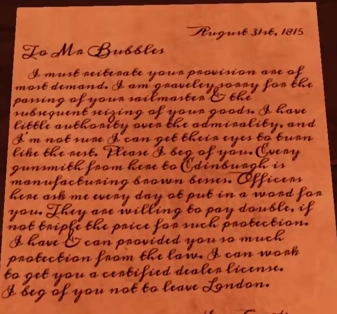 August 31st, 1815
To Mr Bubbles
I must reiterate your provision are of
most demand. I am graveley sorry for the
passing of your sailmaster & the
subsequent seizing of your goods. I have
little authority over the admirality, and
I'm not sure I can get their eyes to turn
like the rest. Please I beg of you. Every
gunsmith from here to Edinburgh is
manufacturing brown besses. Officers
here ask me every day ot put in a word for
you. They are willing to pay double, if
not triple the price for such protection.
I have & can provided you so much
protection from the law. I can work
to get you a certified dealer license.
I beg of you not to leave London.